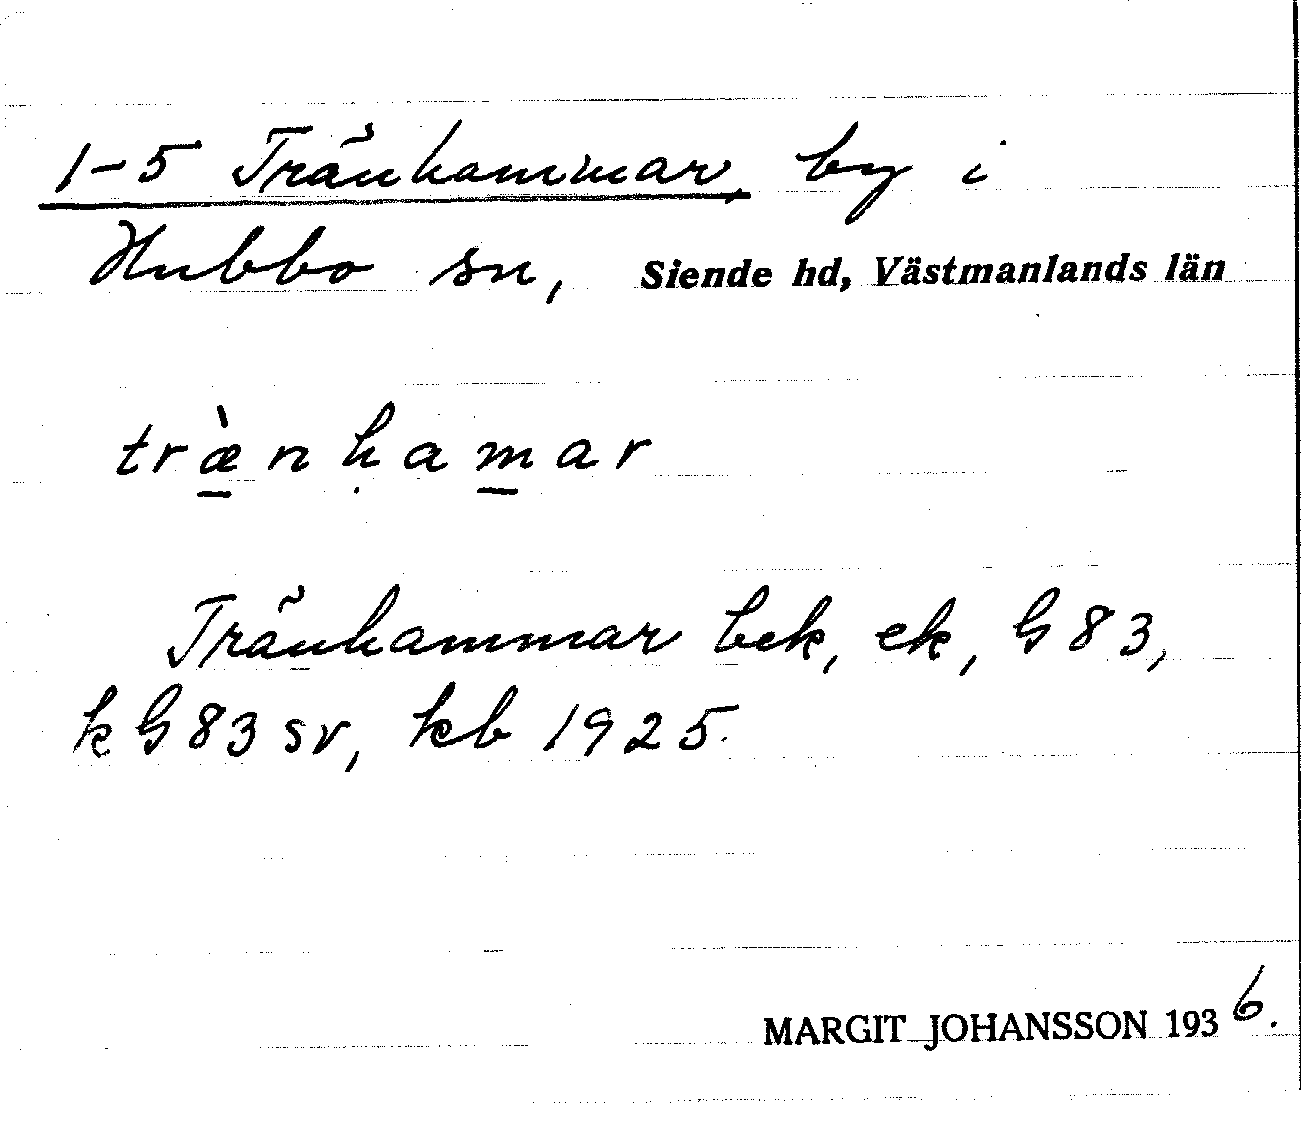 1-5 Tränhammar, by i
Hubbo sn, Siende hd, Västmanlands län
træ̀nḥamar
Tränhammar bek, ek, G 83,
k G 83 sv, kb 1925.
MARGIT JOHANSSON 1936.